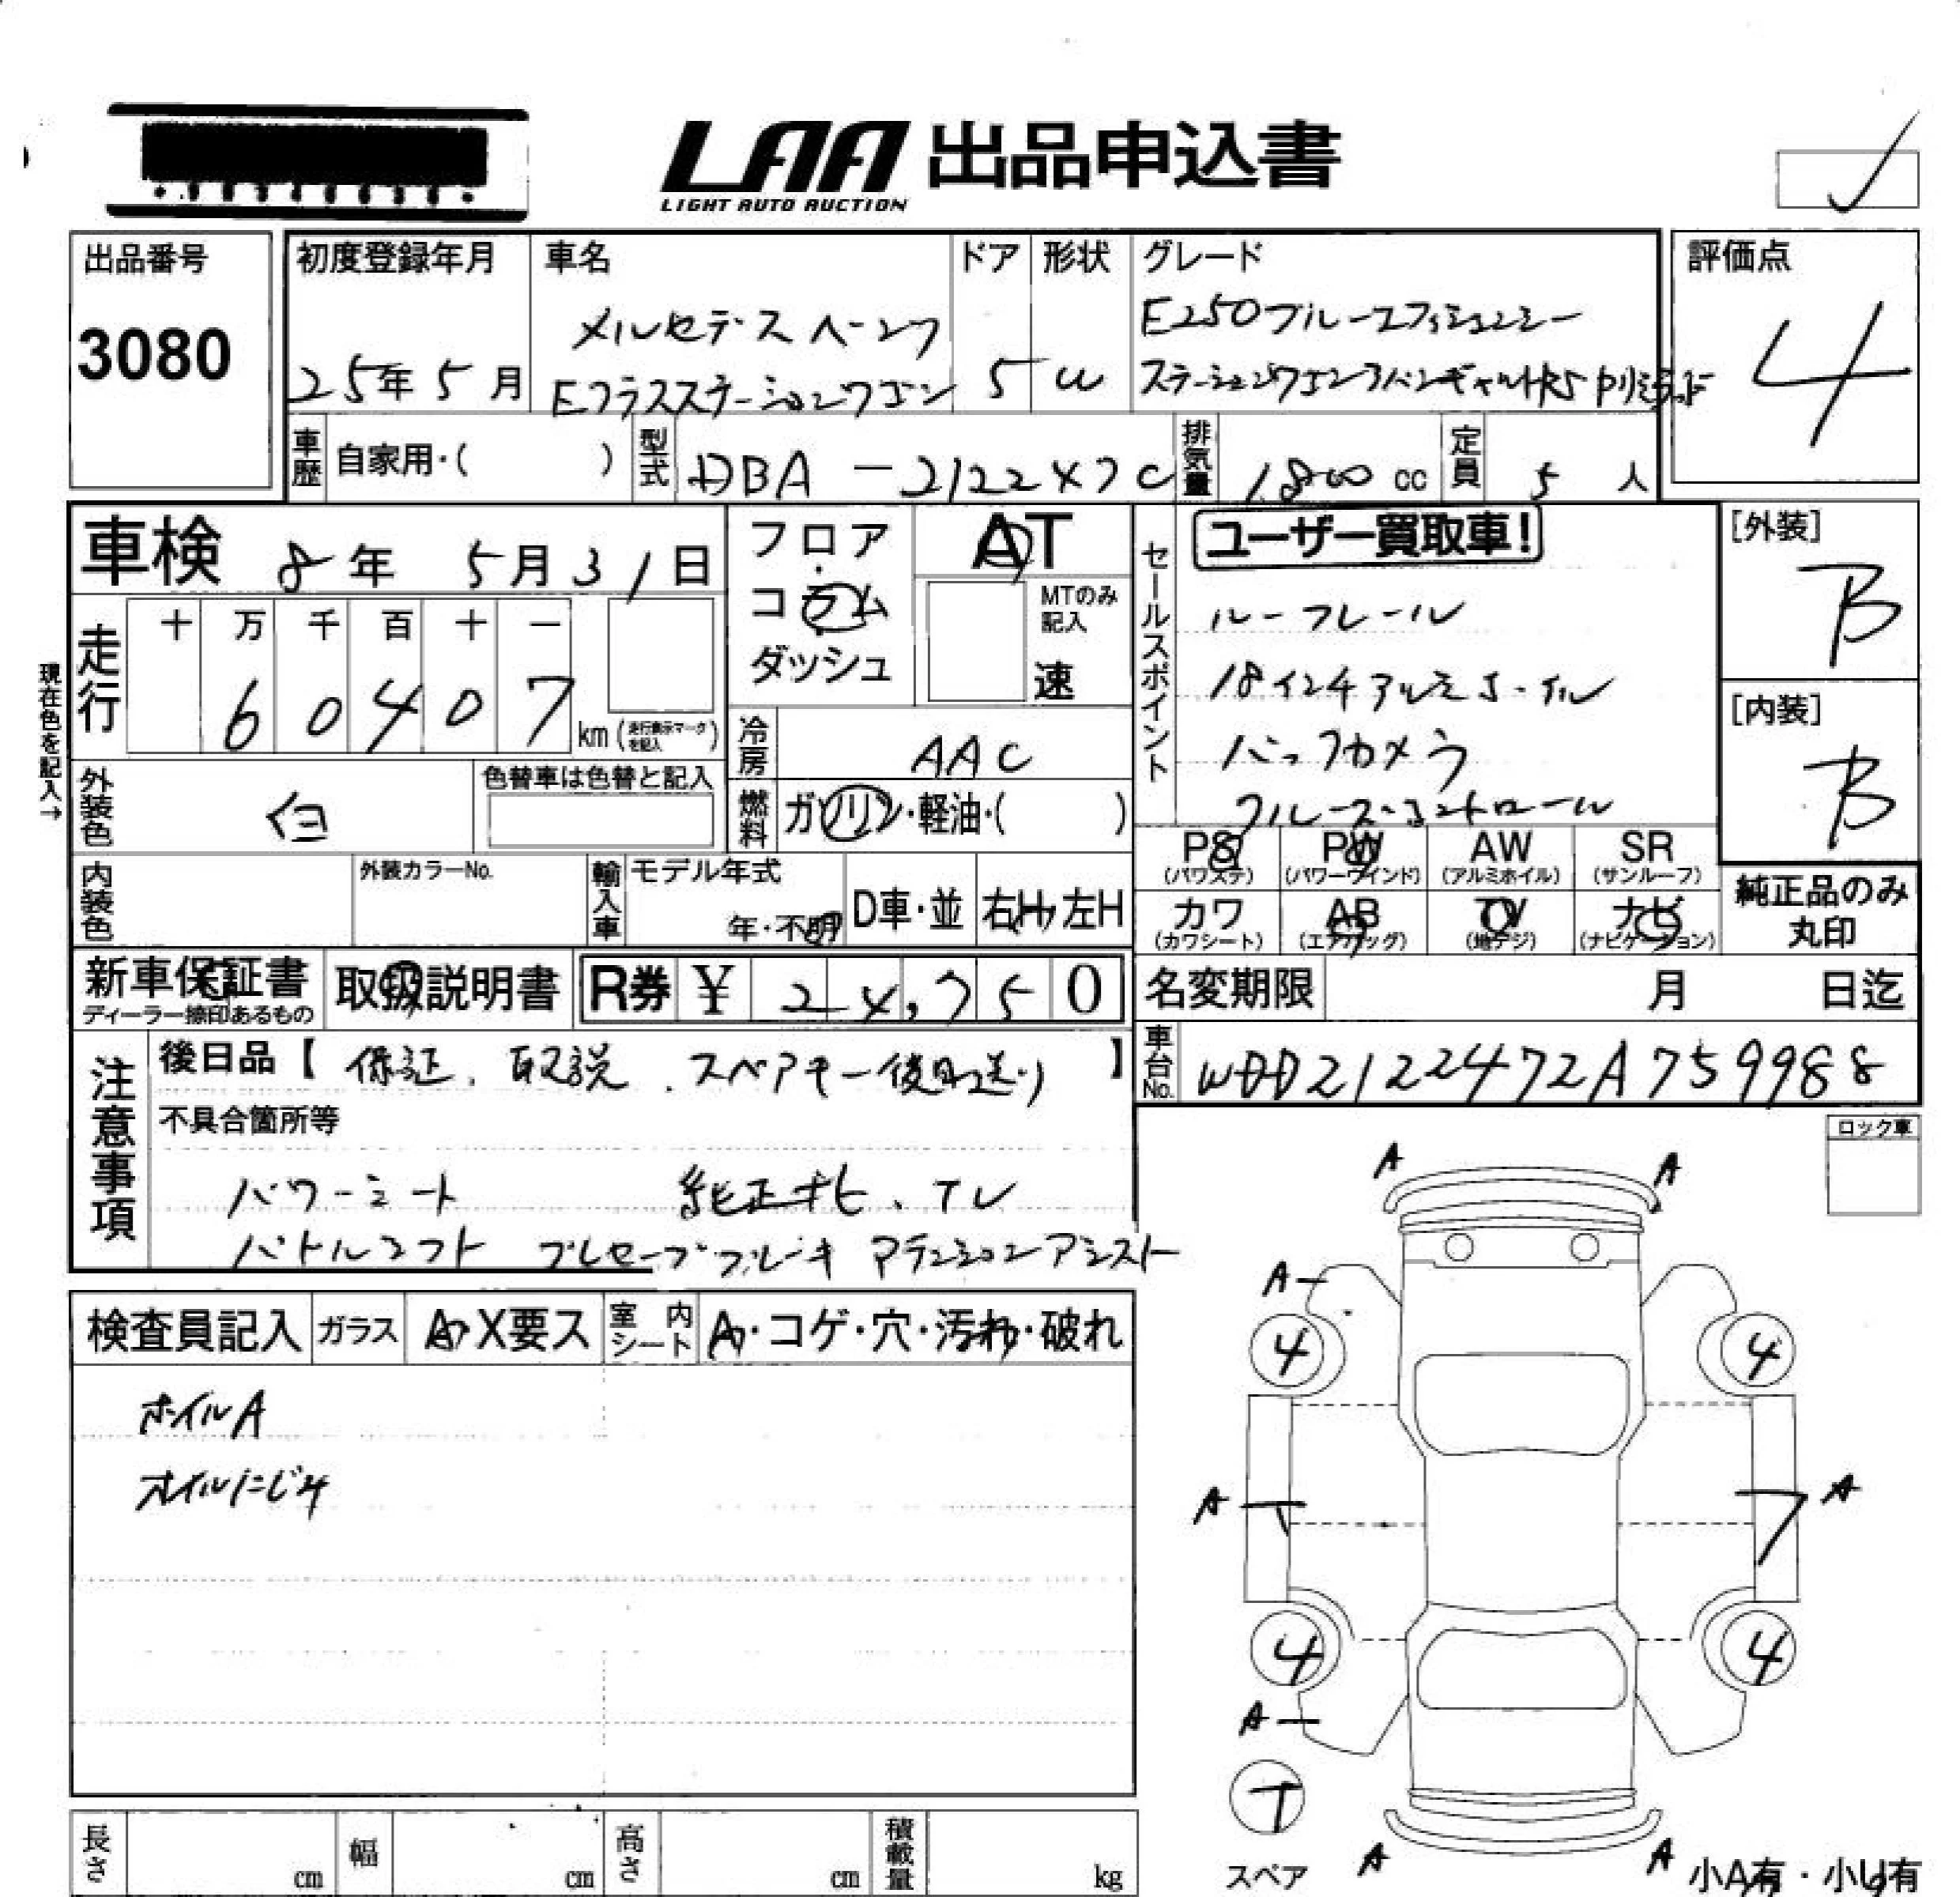 LAA 出品申込書
LIGHT AUTO AUCTION
出品番号
3080
初度登録年月
25年5月
車名
メルセデスベンツ
Eクラスステーションワゴン
ドア
5
形状
W
グレード
E250ブルーエフィシェンシー
ステーションワゴンアバンギャルド
評価点
4
車歴
自家用・( )
型式
DBA-212247C
排気量
1800 cc
定員
5 人
車検 8年 5月31日
フロア・
コラム・
ダッシュ
AT
MTのみ
記入
速
走行
十 万 千 百 十 一
6 0 4 0 7
km (走行表示マークを記入)
現在色を記入→
冷房
AAC
外装色
白
色替車は色替と記入
燃料
ガソリン・軽油・( )
内装色
外装カラーNo.
輸入車
モデル年式
年・不明
D車・並
右H・左H
セールスポイント
ユーザー買取車!
ルーフレール
18インチアルミホイル
バックカメラ
クルーズコントロール
[外装]
B
[内装]
B
PS
(パワステ)
PW
(パワーウインド)
AW
(アルミホイル)
SR
(サンルーフ)
カワ
(カワシート)
AB
(エアバッグ)
TV
(地デジ)
ナビ
(ナビゲーション)
純正品のみ
丸印
新車保証書
ディーラー捺印あるもの
取扱説明書
R券 ¥ 24,750
名変期限 月 日迄
車台No.
WDD2122472A759988
注意事項
後日品【 保証、取説、スペアキー後日送り 】
不具合箇所等
パワーシート 純正ナビ、TV
パドルシフト プレセーフブレーキ アテンションアシスト
ロック車
検査員記入
ガラス
A・X要ス
室内シート
A・コゲ・穴・汚れ・破れ
ホイルA
オイルにじみ
A A
A
4 4
A A
4 4
A
T
スペア
A A
小A有・小U有
長さ cm
幅 cm
高さ cm
積載量 kg